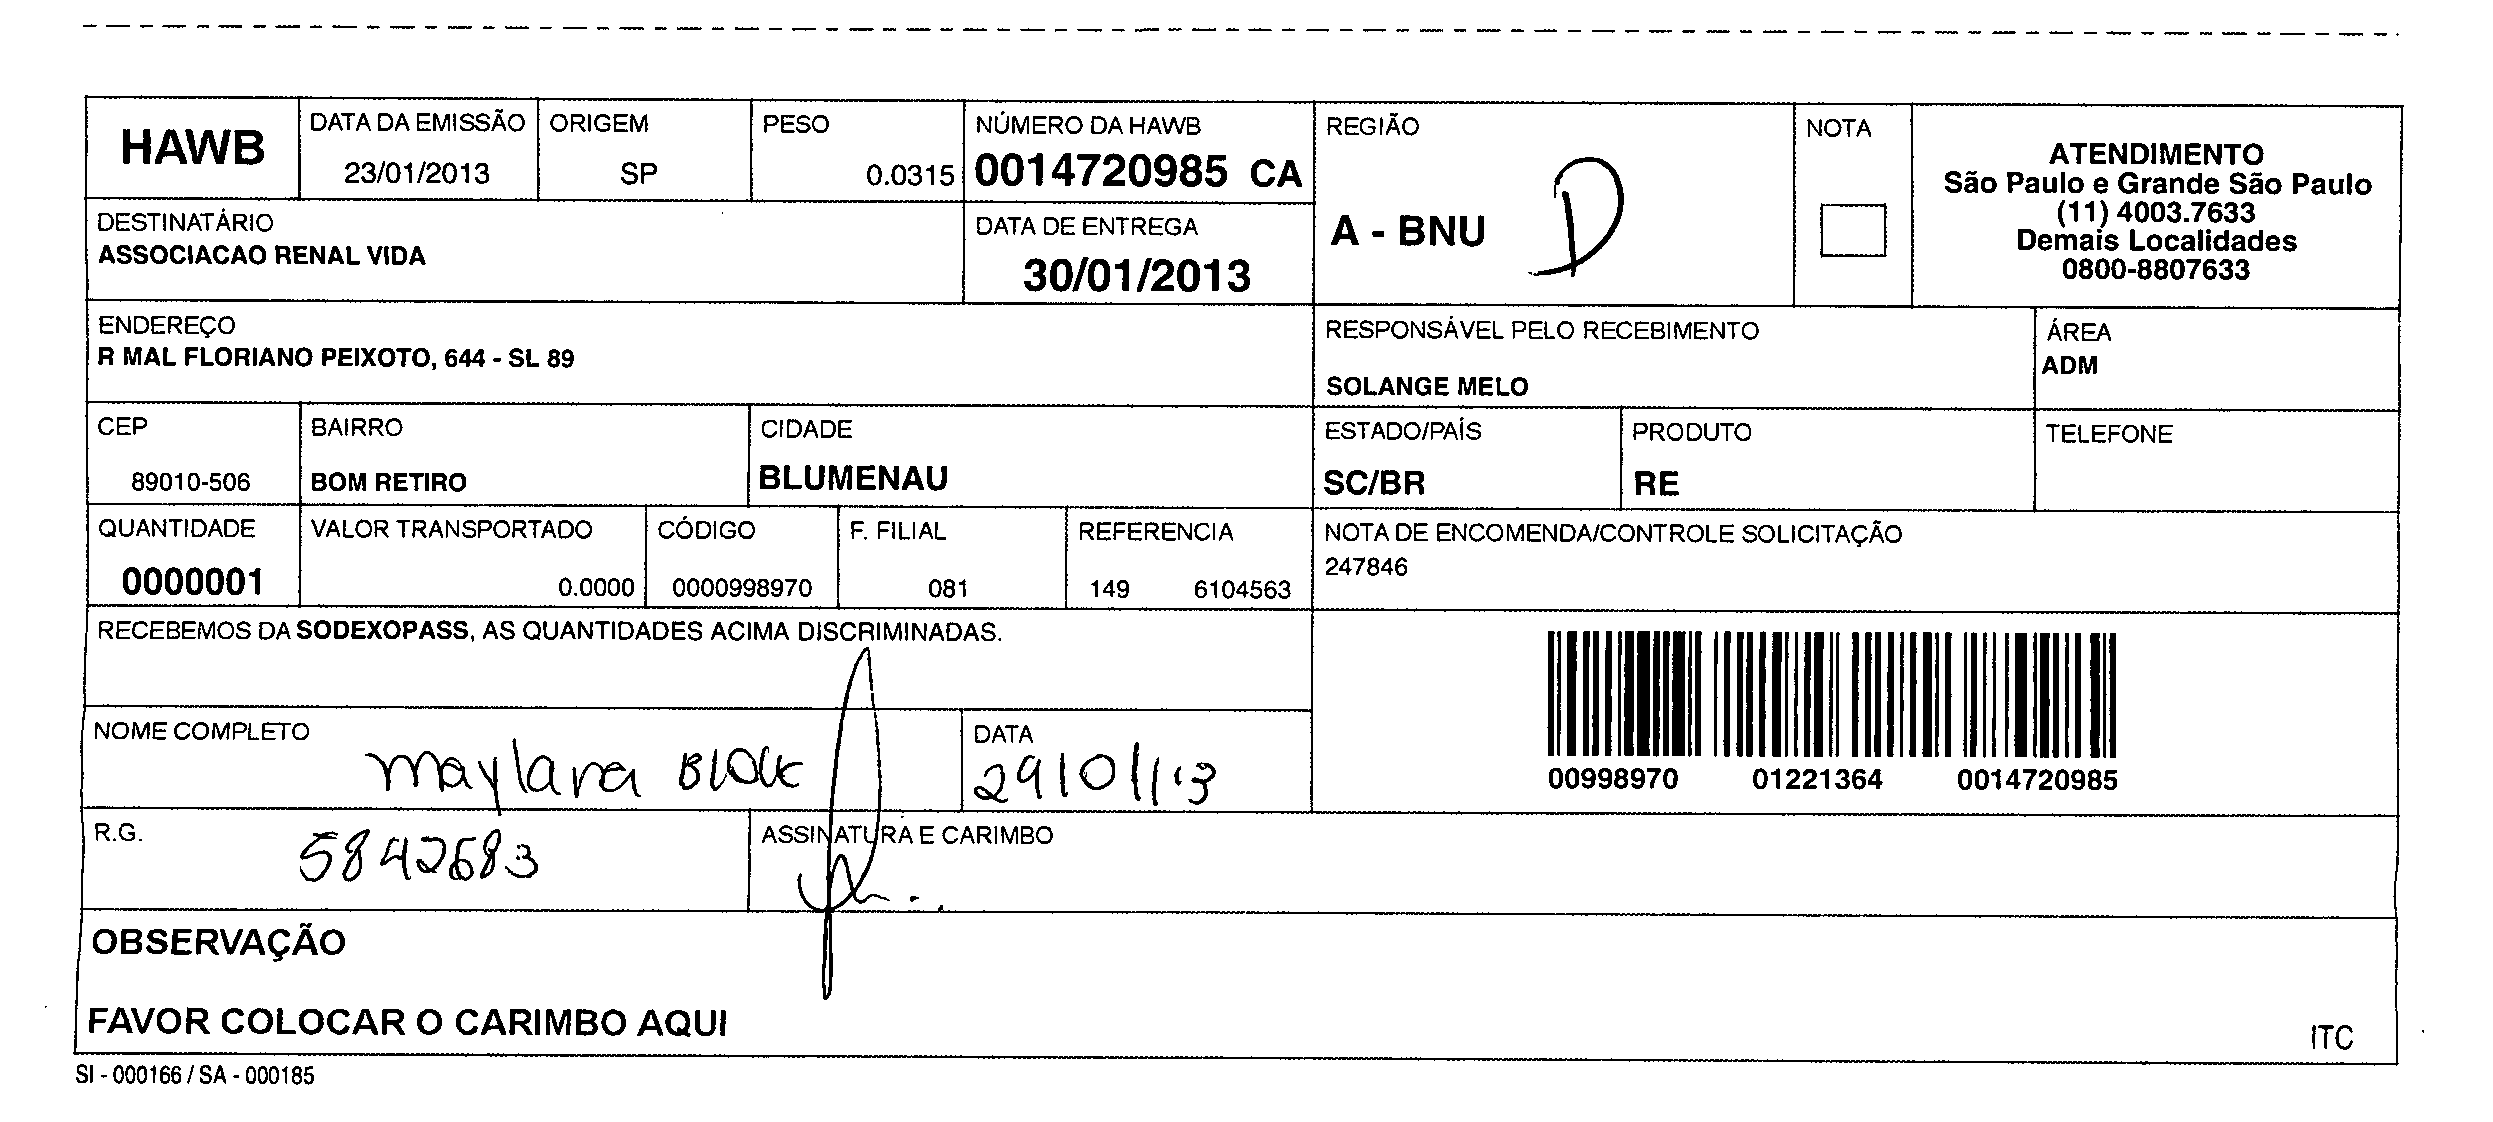 HAWB
DATA DA EMISSÃO
23/01/2013
ORIGEM
SP
PESO
0.0315
NÚMERO DA HAWB
0014720985 CA
REGIÃO
A - BNU
D
NOTA
ATENDIMENTO
São Paulo e Grande São Paulo
(11) 4003.7633
Demais Localidades
0800-8807633
DESTINATÁRIO
ASSOCIACAO RENAL VIDA
DATA DE ENTREGA
30/01/2013
ENDEREÇO
R MAL FLORIANO PEIXOTO, 644 - SL 89
RESPONSÁVEL PELO RECEBIMENTO
SOLANGE MELO
ÁREA
ADM
CEP
89010-506
BAIRRO
BOM RETIRO
CIDADE
BLUMENAU
ESTADO/PAÍS
SC/BR
PRODUTO
RE
TELEFONE
QUANTIDADE
0000001
VALOR TRANSPORTADO
0.0000
CÓDIGO
0000998970
F. FILIAL
081
REFERENCIA
149 6104563
NOTA DE ENCOMENDA/CONTROLE SOLICITAÇÃO
247846
RECEBEMOS DA SODEXOPASS, AS QUANTIDADES ACIMA DISCRIMINADAS.
00998970 01221364 0014720985
NOME COMPLETO
maylara
DATA
29/01/13
R.G.
5842683
ASSINATURA E CARIMBO
OBSERVAÇÃO
FAVOR COLOCAR O CARIMBO AQUI
ITC
SI - 000166 / SA - 000185